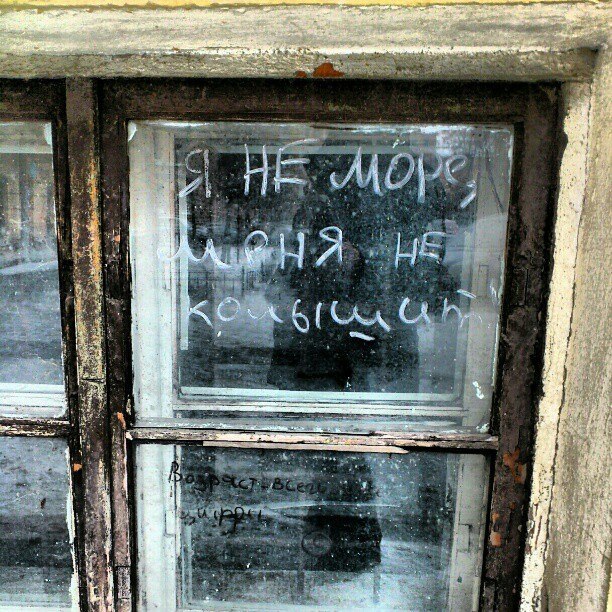 Я НЕ МОРЕ,
МЕНЯ НЕ
колышит
Возраст-всего
цифры